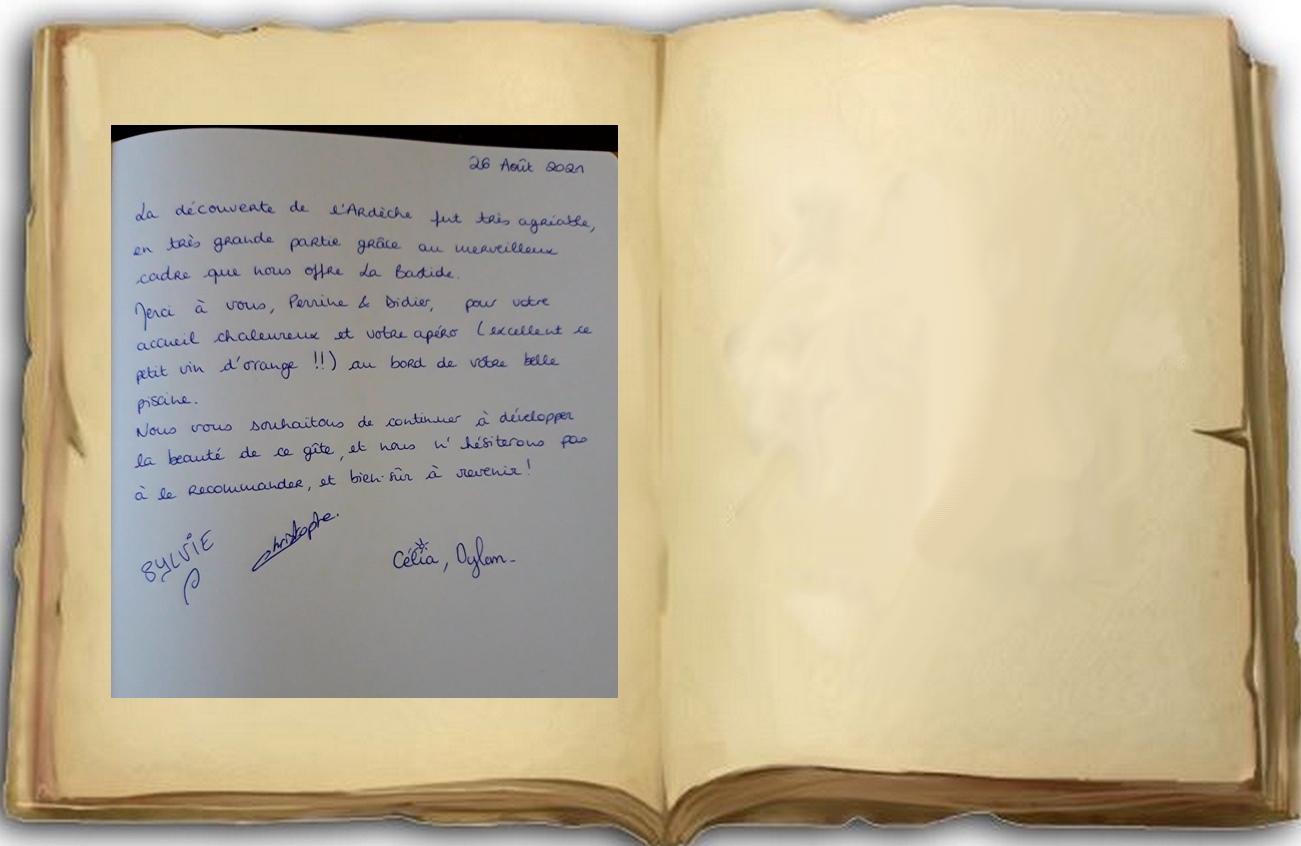 26 Août 2021
La découverte de l'Ardèche fut très agréable,
en très grande partie grâce au merveilleux
cadre que nous offre La Bastide.
Merci à vous, Perrine & Didier, pour votre
accueil chaleureux et votre apéro (excellent ce
petit vin d'orange !!) au bord de votre belle
piscine.
Nous vous souhaitons de continuer à développer
la beauté de ce gîte, et nous n'hésiterons pas
à le recommander, et bien-sûr à revenir !
SYLVIE christophe. Célia, Dylan-